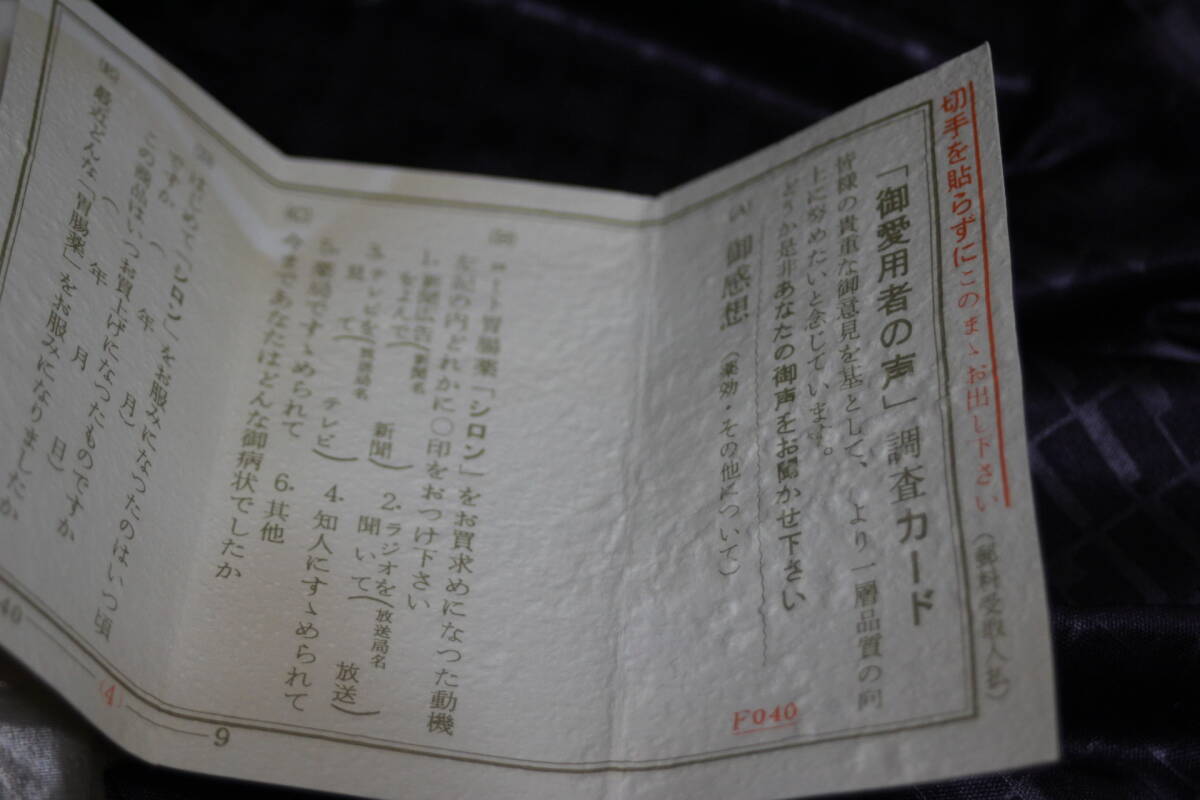 切手を貼らずにこのまゝお出し下さい（郵料受取人払）
「御愛用者の声」調査カード
皆様の貴重な御意見を基として、より一層品質の向
上に努めたいと念じています。
どうか是非あなたの御声をお聞かせ下さい
(A) 御感想（薬効・その他について）
F040
胃腸薬「シロン」をお買求めになつた動機
左記の内どれかに○印をおつけ下さい
1. 新聞広告をよんで（新聞名 新聞） 2. ラジオを聞いて（放送局名 放送）
3. テレビを見て（放送局名 テレビ） 4. 知人にすゝめられて
5. 薬局ですゝめられて 6. 其他
(C) 今まであなたはどんな御病状でしたか
はじめて「シロン」をお服みになつたのはいつ頃
ですか（ 年 月）
この商品はいつお買上げになつたものですか
（ 年 月 日）
最近どんな「胃腸薬」をお服みになりましたか
40
(4)
9